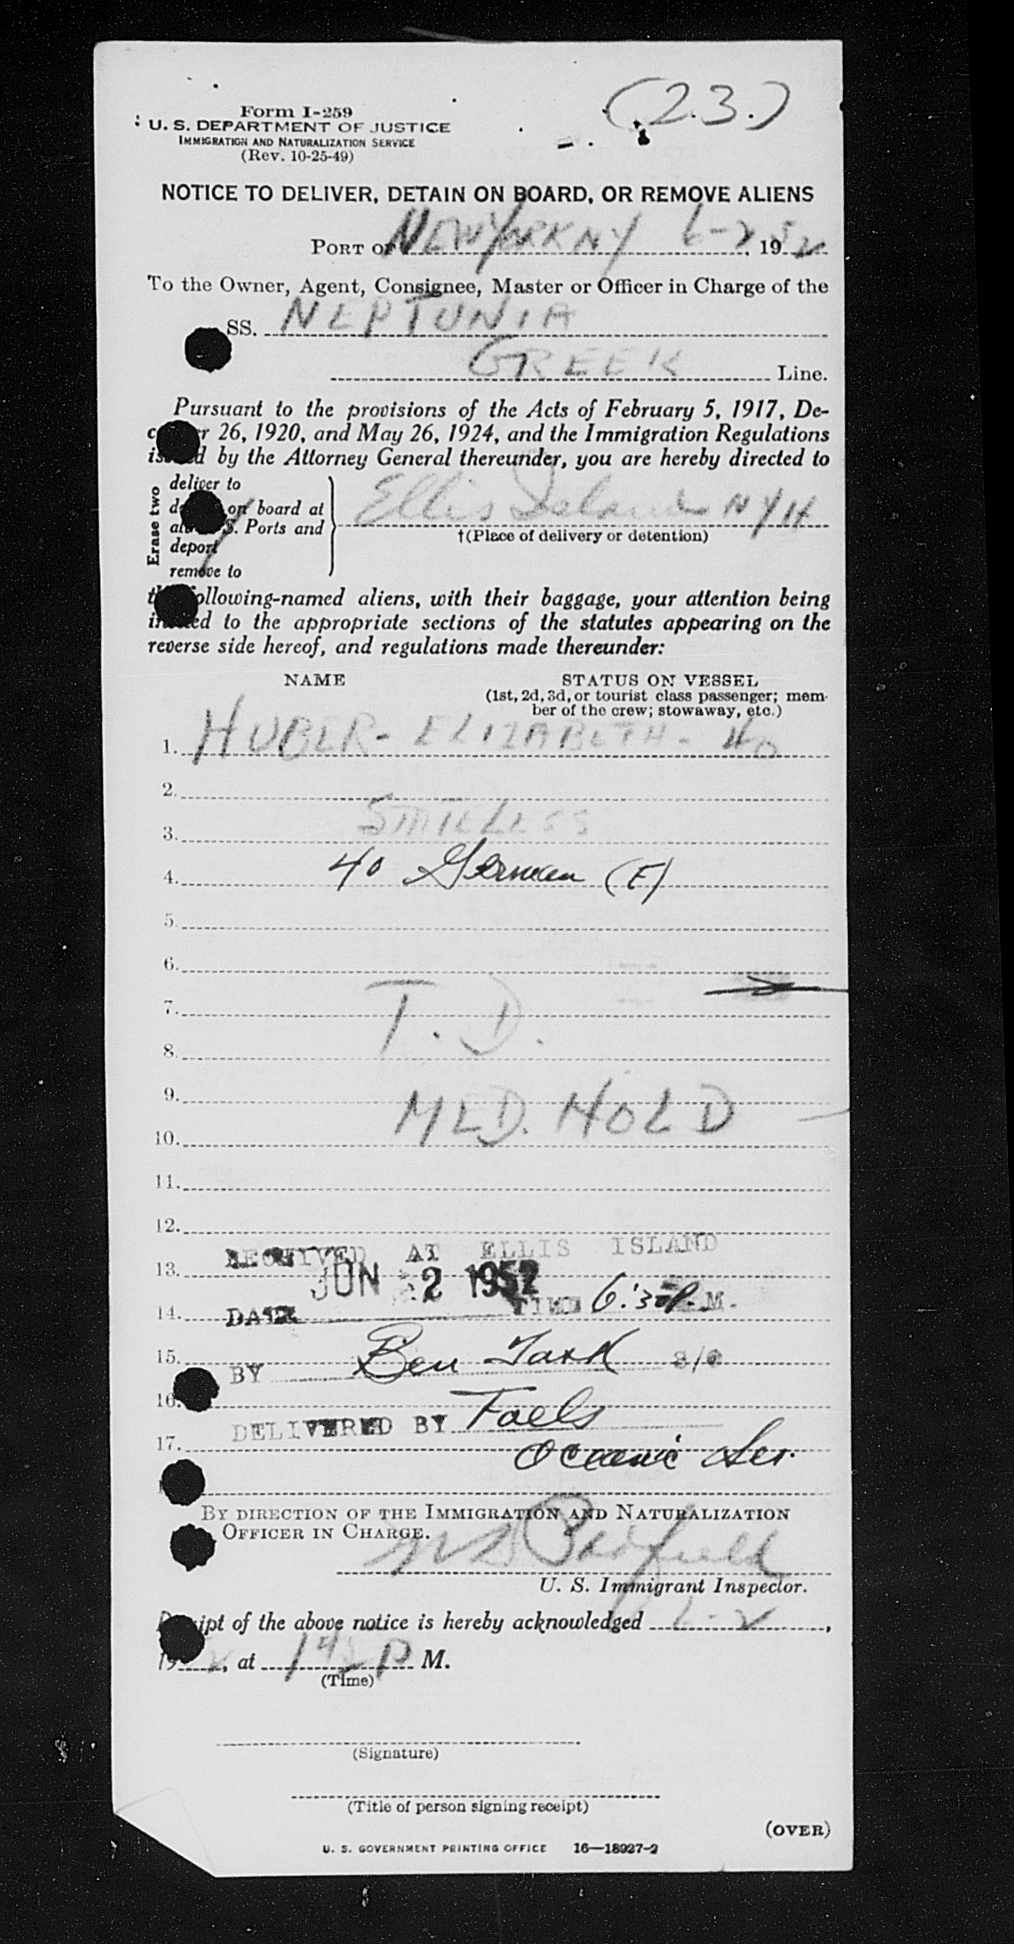 (23.)
Form I-259
U. S. DEPARTMENT OF JUSTICE
IMMIGRATION AND NATURALIZATION SERVICE
(Rev. 10-25-49)
NOTICE TO DELIVER, DETAIN ON BOARD, OR REMOVE ALIENS
PORT OF NEW YORK NY 6-2, 1952
To the Owner, Agent, Consignee, Master or Officer in Charge of the
SS. NEPTUNIA
GREEK Line.
Pursuant to the provisions of the Acts of February 5, 1917, De-
r 26, 1920, and May 26, 1924, and the Immigration Regulations
by the Attorney General thereunder, you are hereby directed to
Erase two
deliver to
on board at
Ports and
deport
remove to
Ellis Island NYH
†(Place of delivery or detention)
following-named aliens, with their baggage, your attention being
to the appropriate sections of the statutes appearing on the
reverse side hereof, and regulations made thereunder:
NAME STATUS ON VESSEL
(1st, 2d, 3d, or tourist class passenger; mem-
ber of the crew; stowaway, etc.)
1. HUBER - ELIZABETH - 40
2.
3. STATELESS
4. 40 German (F)
5.
6.
7.
8. T. D.
9.
10. MED. HOLD
11.
12.
RECEIVED AT ELLIS ISLAND
13. JUN 2 1952
14. DATE TIME 6:30 P.M.
15. BY Ben
16.
DELIVERED BY
17. Oceanic Ser.
BY DIRECTION OF THE IMMIGRATION AND NATURALIZATION
OFFICER IN CHARGE.
U. S. Immigrant Inspector.
Receipt of the above notice is hereby acknowledged 6-2,
19 2, at 1 42 P M.
(Time)
(Signature)
(Title of person signing receipt)
(OVER)
U. S. GOVERNMENT PRINTING OFFICE 16—18927-2